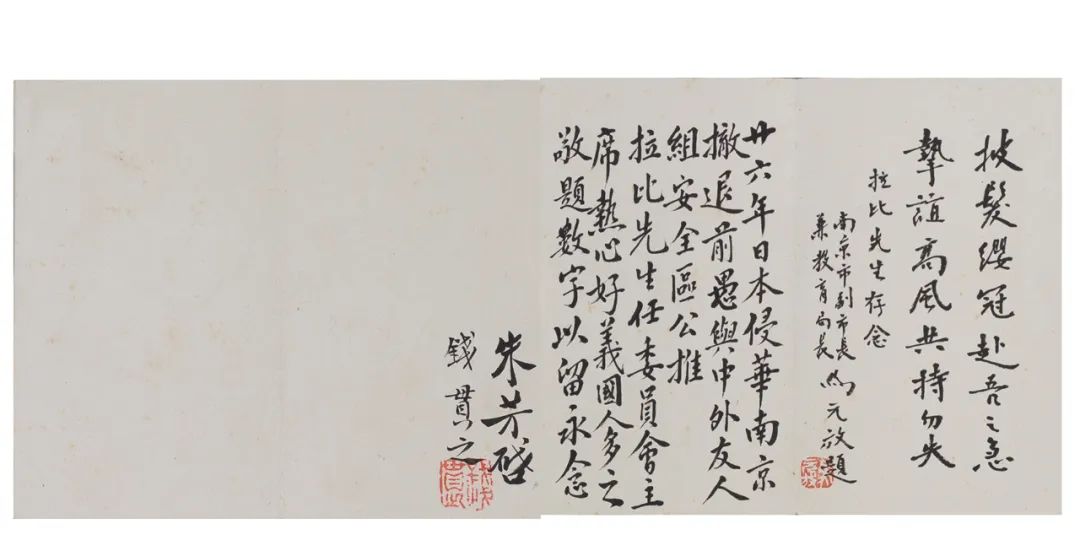 披髮纓冠赴吾之急
摯誼高風共持勿失
拉比先生存念
南京市副市長
兼教育局長
馬元放題
廿六年日本侵華南京
撤退前愚與中外友人
組安全區公推
拉比先生任委員會主
席熱心好義國人多之
敬題數字以留永念
朱芳
錢貫之